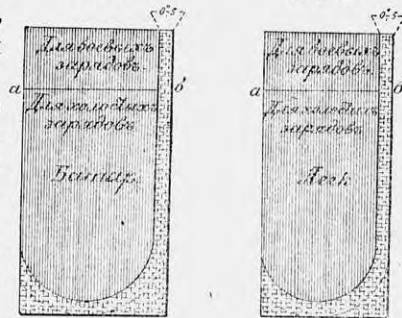 0"5
Для боевыхъ
зарядовъ.
а б
Для холостыхъ
зарядовъ
Батар.
0"5
Для боевыхъ
зарядовъ.
а б
Для холостыхъ
зарядовъ
Легк